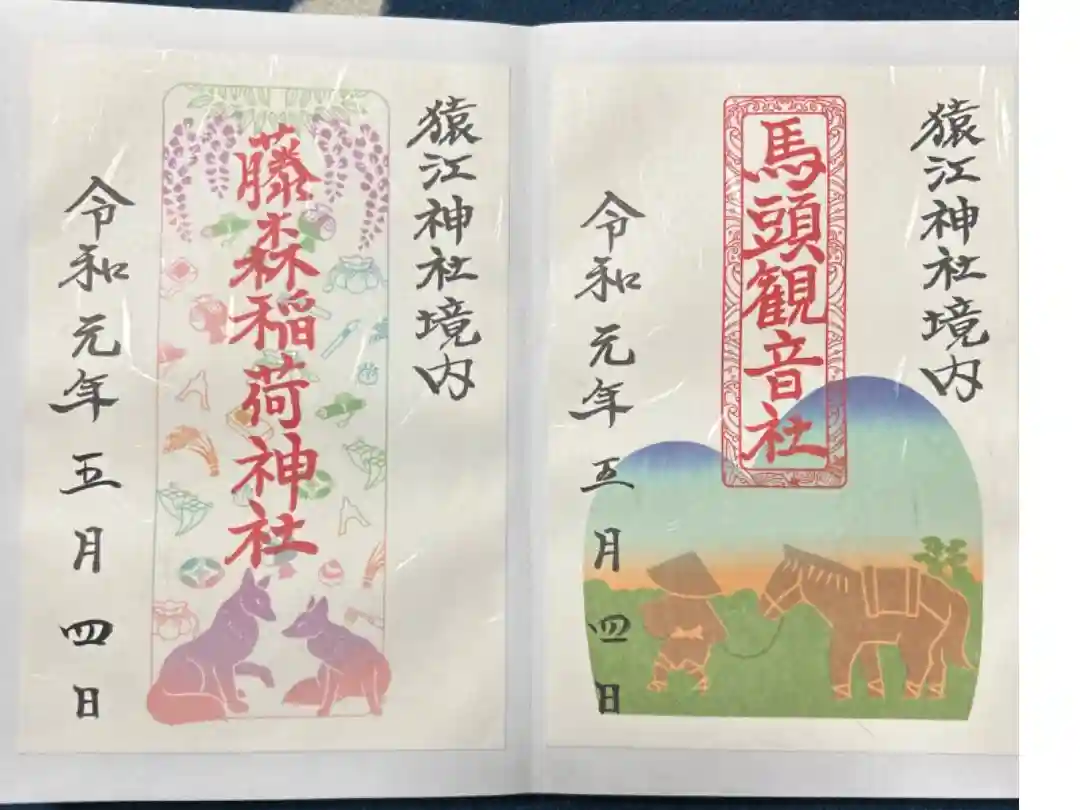 猿江神社境内
馬頭観音社
令和元年五月四日
猿江神社境内
藤森稲荷神社
令和元年五月四日